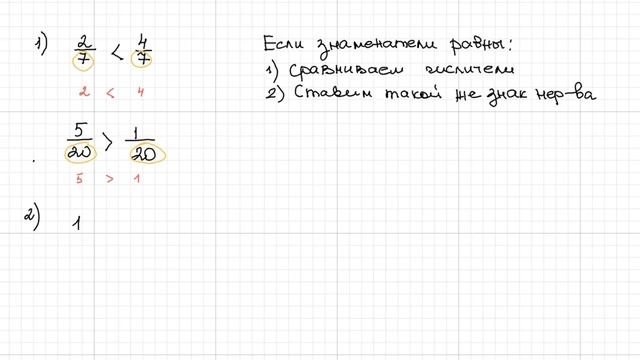 1) 2/7 < 4/7
2 < 4
5/20 > 1/20
5 > 1
2) 1
Если знаменатели равны:
1) Сравниваем числичели
2) Ставим такой же знак нер-ва